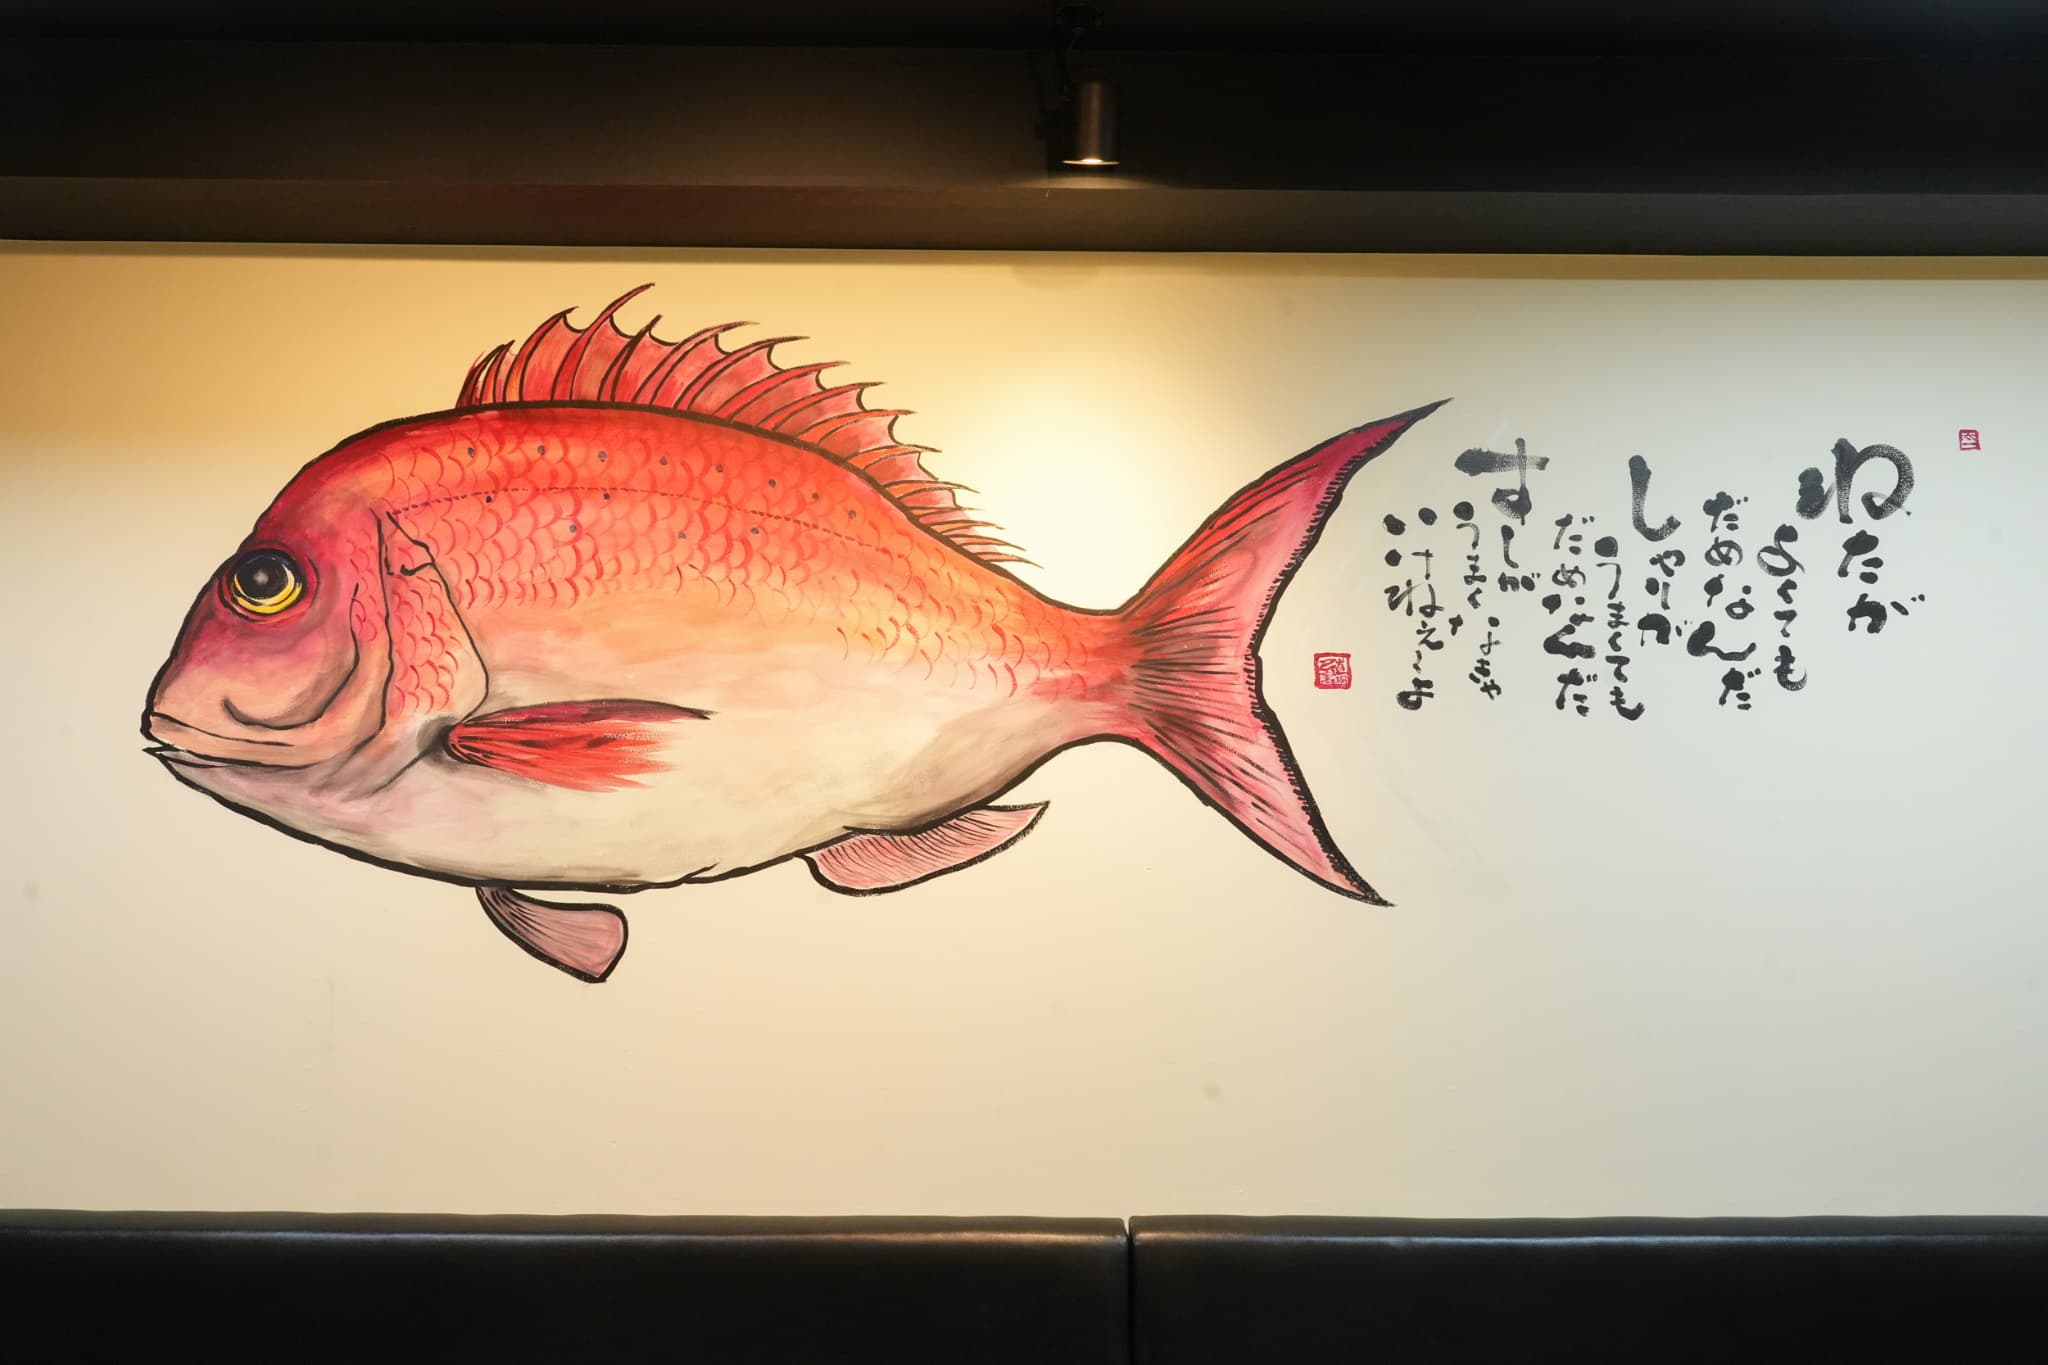 ねたが
よくても
だめなんだ
しゃりが
うまくても
だめなんだ
すしが
うまくなきゃ
いけねぇよ